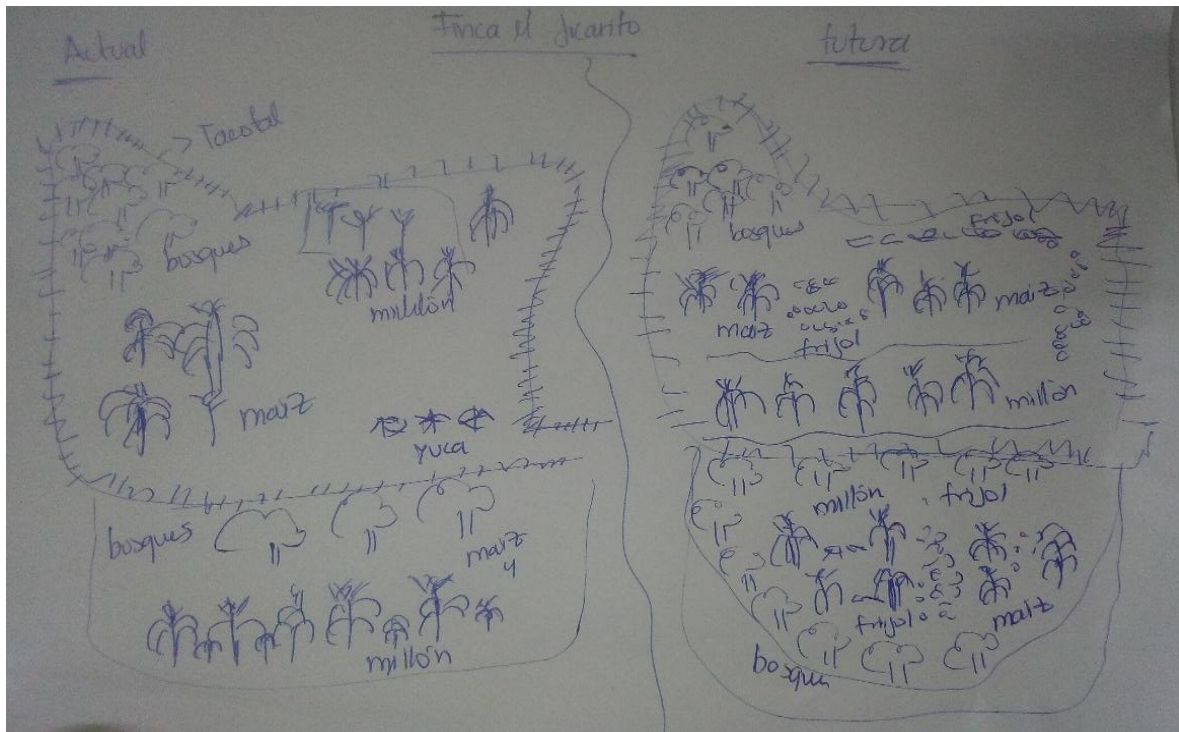 Finca el Jicarito
Actual
Tacotal
bosques
millón
maiz
yuca
bosques
maiz
y
millón
futura
bosques
frijol
maiz
frijol
maiz
millón
millón
frijol
frijol
maiz
bosque